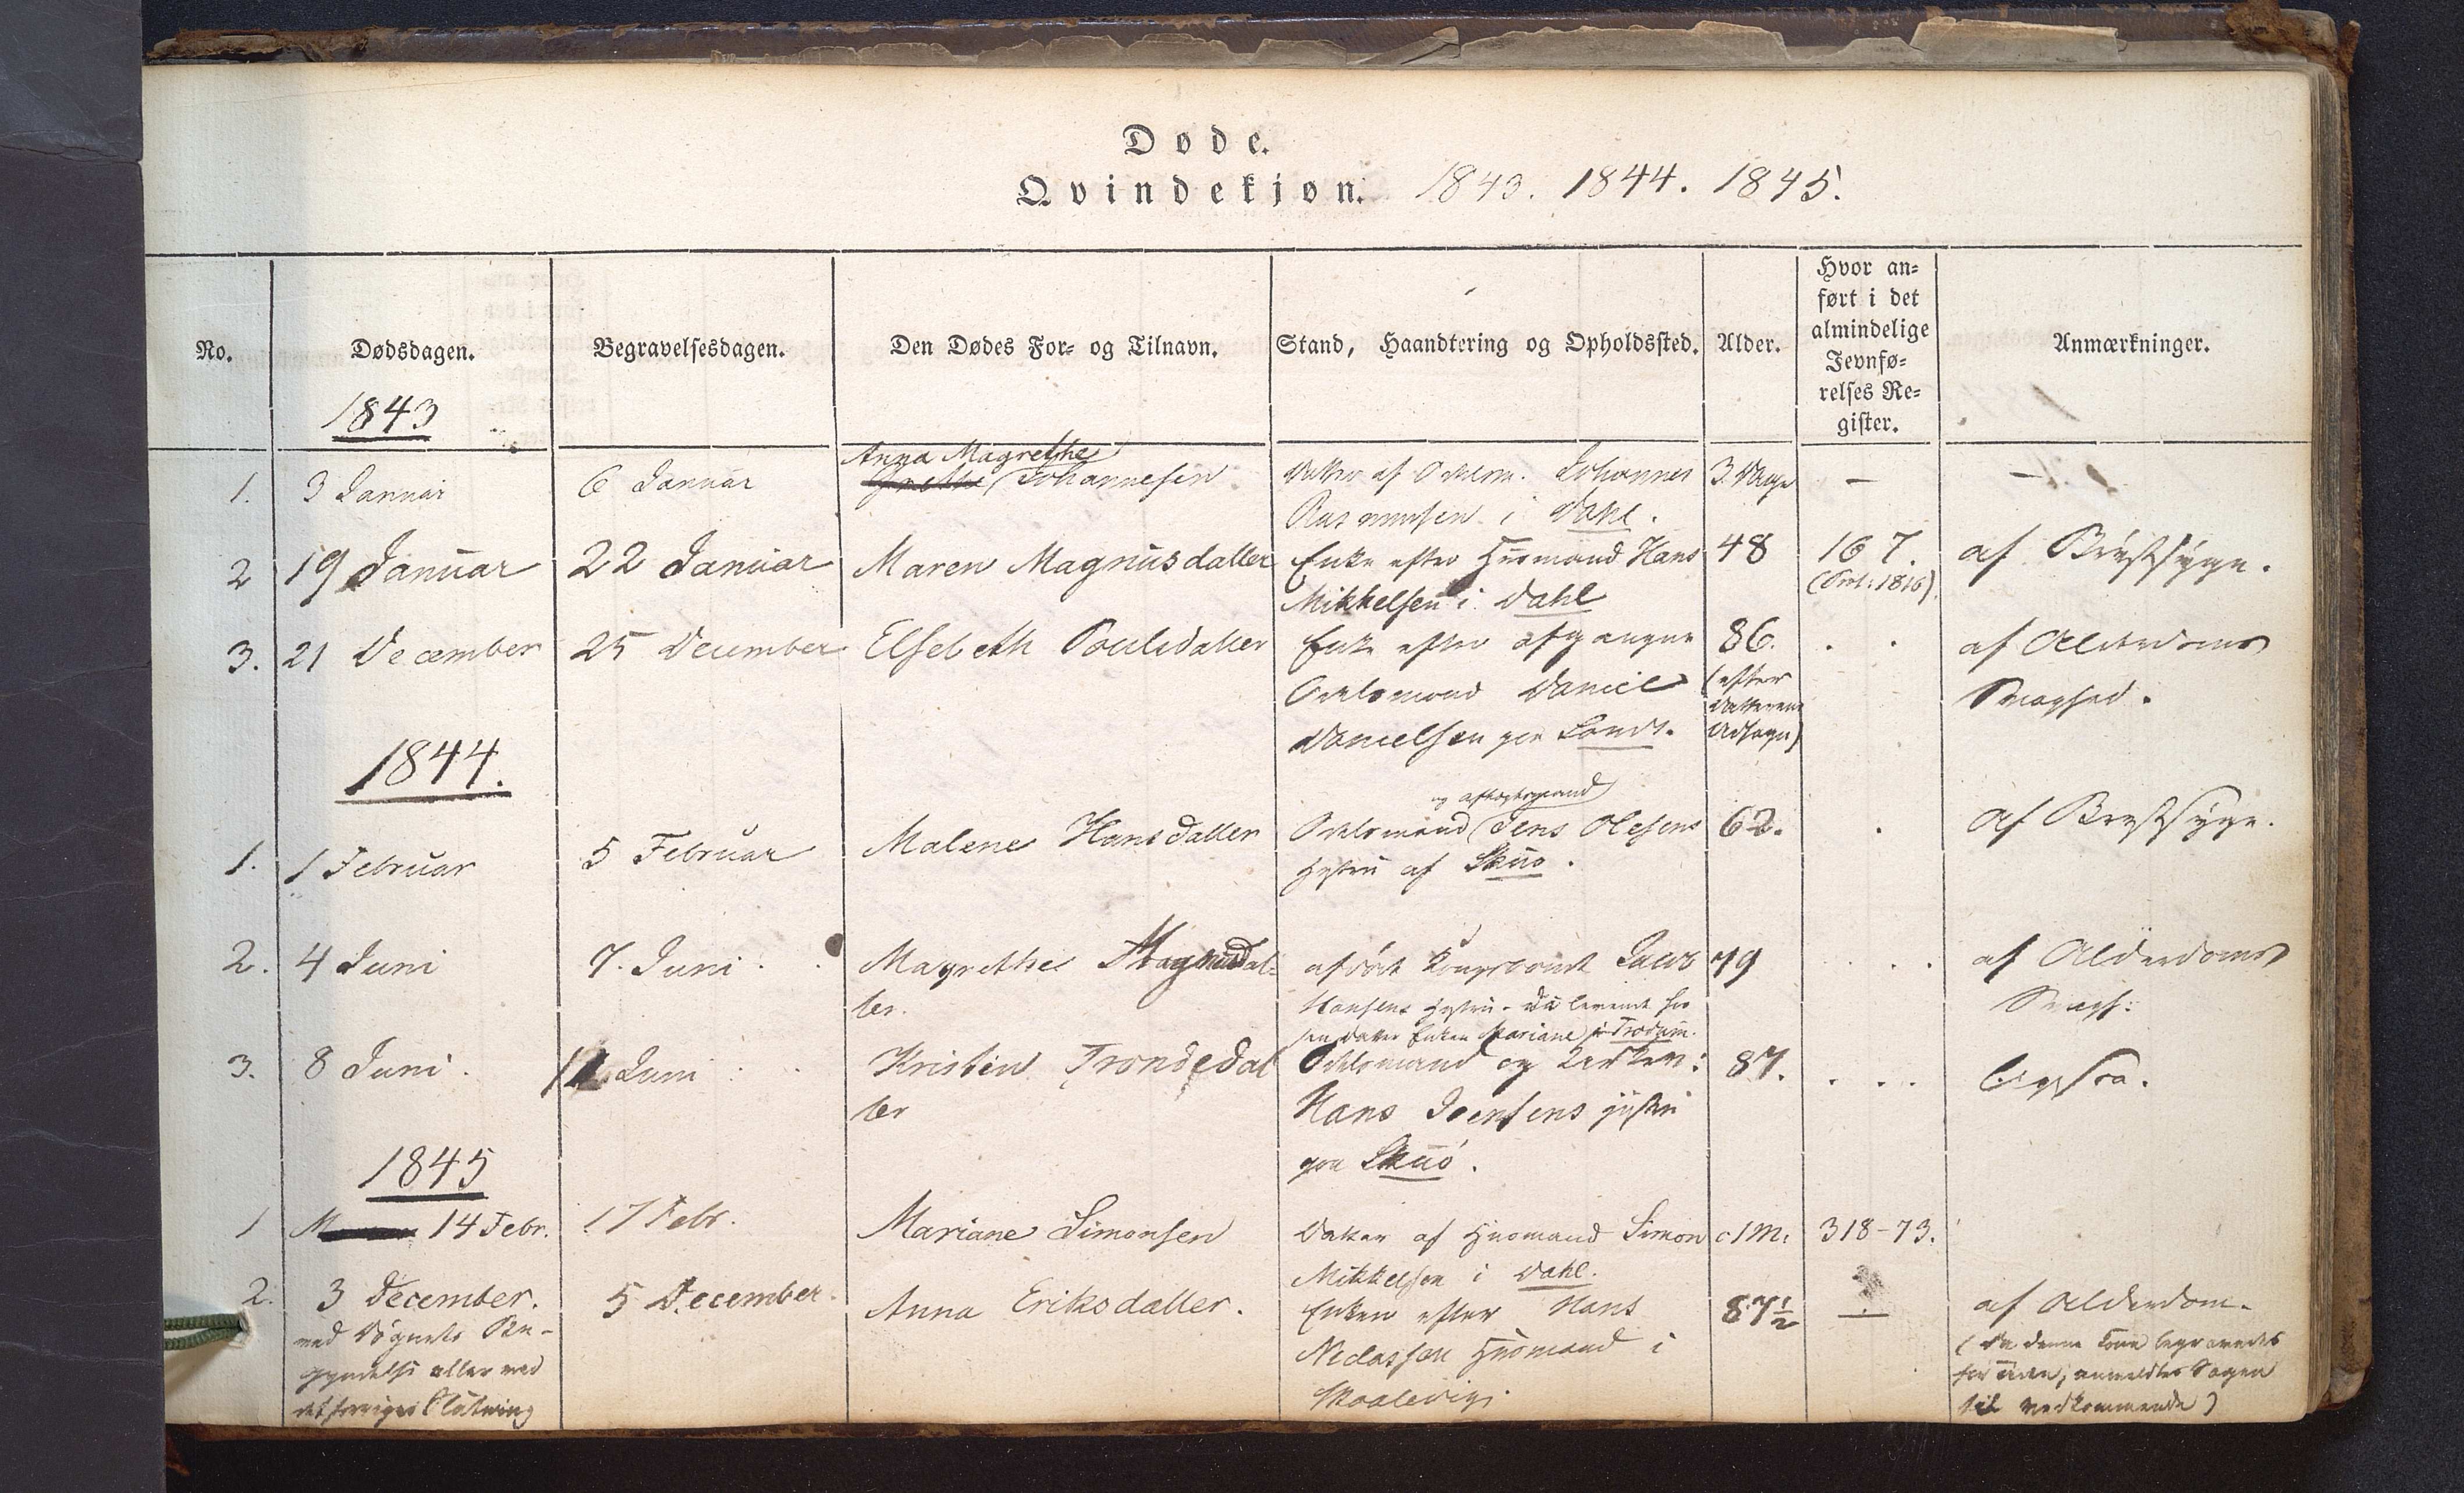 Døde.
Qvindekjøn. 1843. 1844. 1845.
No.
Dødsdagen.
Begravelsesdagen.
Den Dødes For- og Tilnavn.
Stand, Haandtering og Opholdssted.
Alder.
Hvor an-
ført i det
almindelige
Jevnfø-
relses Re-
gister.
Anmærkninger.
1843
1. 3 Januar 6 Januar
Anna Magrethe
Grethe Johannesen
Datter af Odelsm. Johannes
Rasmussen i Dahl.
3 Dage —
2 19 Januar 22 Januar Maren Magnusdatter
Enke efter Huusmand Hans
Mikkelsen i Dahl
48
167.
(Prot: 1816)
af Brystsyge.
3. 21 December 25 December Elsebeth Poulsdatter
Enke efter afgangne
Odelsmand Daniel
Danielsen paa Sandt.
86.
(efter
Datterens
Udsagn)
af Alderdoms
Svaghed.
1844.
1. 1 Februar 5 Februar Malene Hansdatter
og aftægtsmand
Odelsmand Jens Olesens
Hustru af Skuø.
62.
af Brystsyge.
2. 4 Juni 7. Juni
Magrethe Magnusdat-
ter.
Kongsbonde Jacob
Hansens Hustru
Datter Enken Mariane i Trodum.
79
af Alderdoms
Svagh:
3. 8 Juni. Juni
Kristin Trondedat
ter
Odelsmand og
Hans Joensens Hustru
paa Skuø.
87.
1845
1 14 Febr. 17 Febr. Mariane Simonsen
Datter af Huusmand Simon
Mikkelsen i Dahl.
c 1 M. 318-73.
2. 3 December. 5 December. Anna Eriksdatter.
ved Døgnets Be-
gyndelse eller ved
det forriges Slutning
Enken efter Hans
Niclassen Huusmand i
Skaalevig.
87 1/2 —
af Alderdom.
(Da denne Kone begravedes
før Tiden, anmeldtes Sagen
til vedkommende)